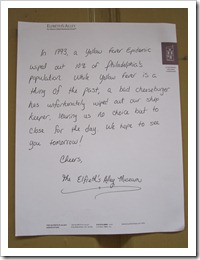 ELFRETH'S ALLEY
In 1793, a Yellow Fever Epidemic
wiped out 10% of Philadelphia's
population. While Yellow fever is a
thing of the past, a bad cheeseburger
has unfortunately wiped out our shop
keeper, leaving us no choice but to
close for the day. We hope to see
you tomorrow!
Cheers,
The Elfreth's Alley Museum